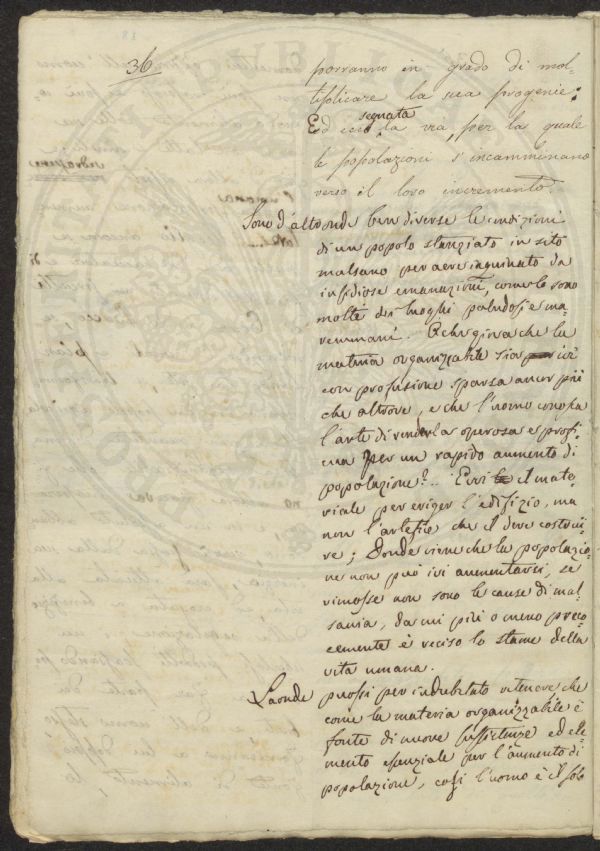 36
porranno in grado di mol-
tiplicare la sua progenie:
Ed ecco segnata la via, per la quale
le popolazioni s'incamminano
verso il loro incremento.
Sono d'altronde ben diverse le condizioni
di un popolo stanziato in sito
malsano per aere inquinato da
insidiose emanazioni, come lo sono
molti dei luoghi paludosi e ma-
remmani. E che giova che la
materia organizzabile sia ivi
con profusione sparsa ancor più
che altrove, e che l'uomo conosca
l'arte di renderla operosa e profi-
cua per un rapido aumento di
popolazione?.. Evvi il mate-
riale per eriger l'edifizio, ma
non l'artefice che il deve costrui-
re; Donde viene che la popolazio-
ne non può ivi aumentarsi, se
rimosse non sono le cause di mal-
sania, da cui più o meno preco-
cemente è reciso lo stame della
vita umana.
Laonde puossi per indubitato ritenere che
come la materia organizzabile è
fonte di nuove sussistenze ed ele-
mento essenziale per l'aumento di
popolazione, così l'uomo è il solo